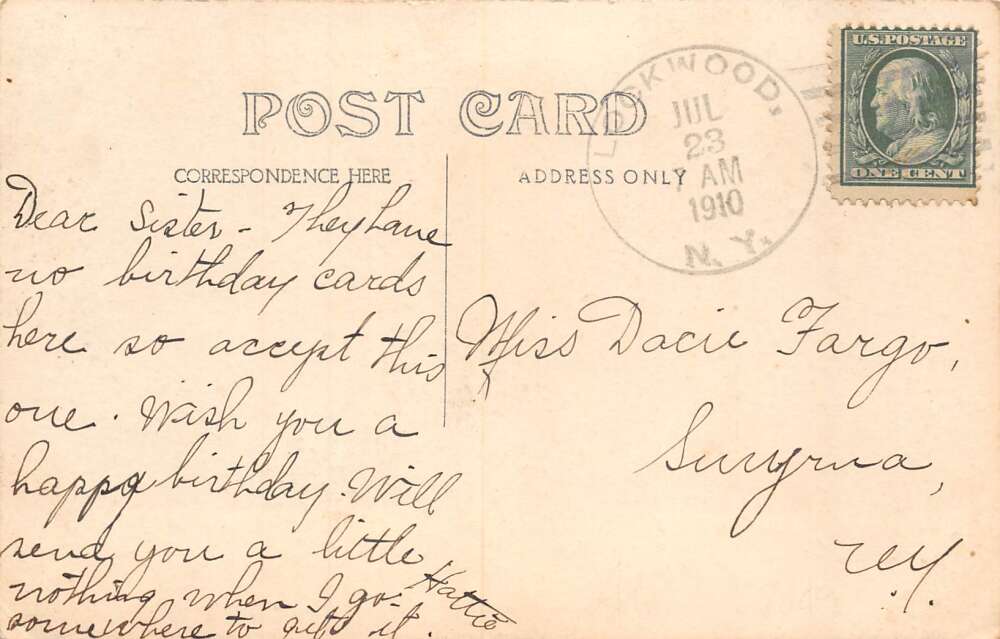 POST CARD
CORRESPONDENCE HERE
ADDRESS ONLY
LOCKWOOD.
JUL
23
7 AM
1910
N. Y.
U.S. POSTAGE
ONE CENT
Dear Sister - They have
no birthday cards
here so accept this
one. Wish you a
happy birthday. Will
send you a little
nothing when I go
somewhere to get it.
Hattie
Miss Dacie Fargo,
Smyrna,
N.Y.